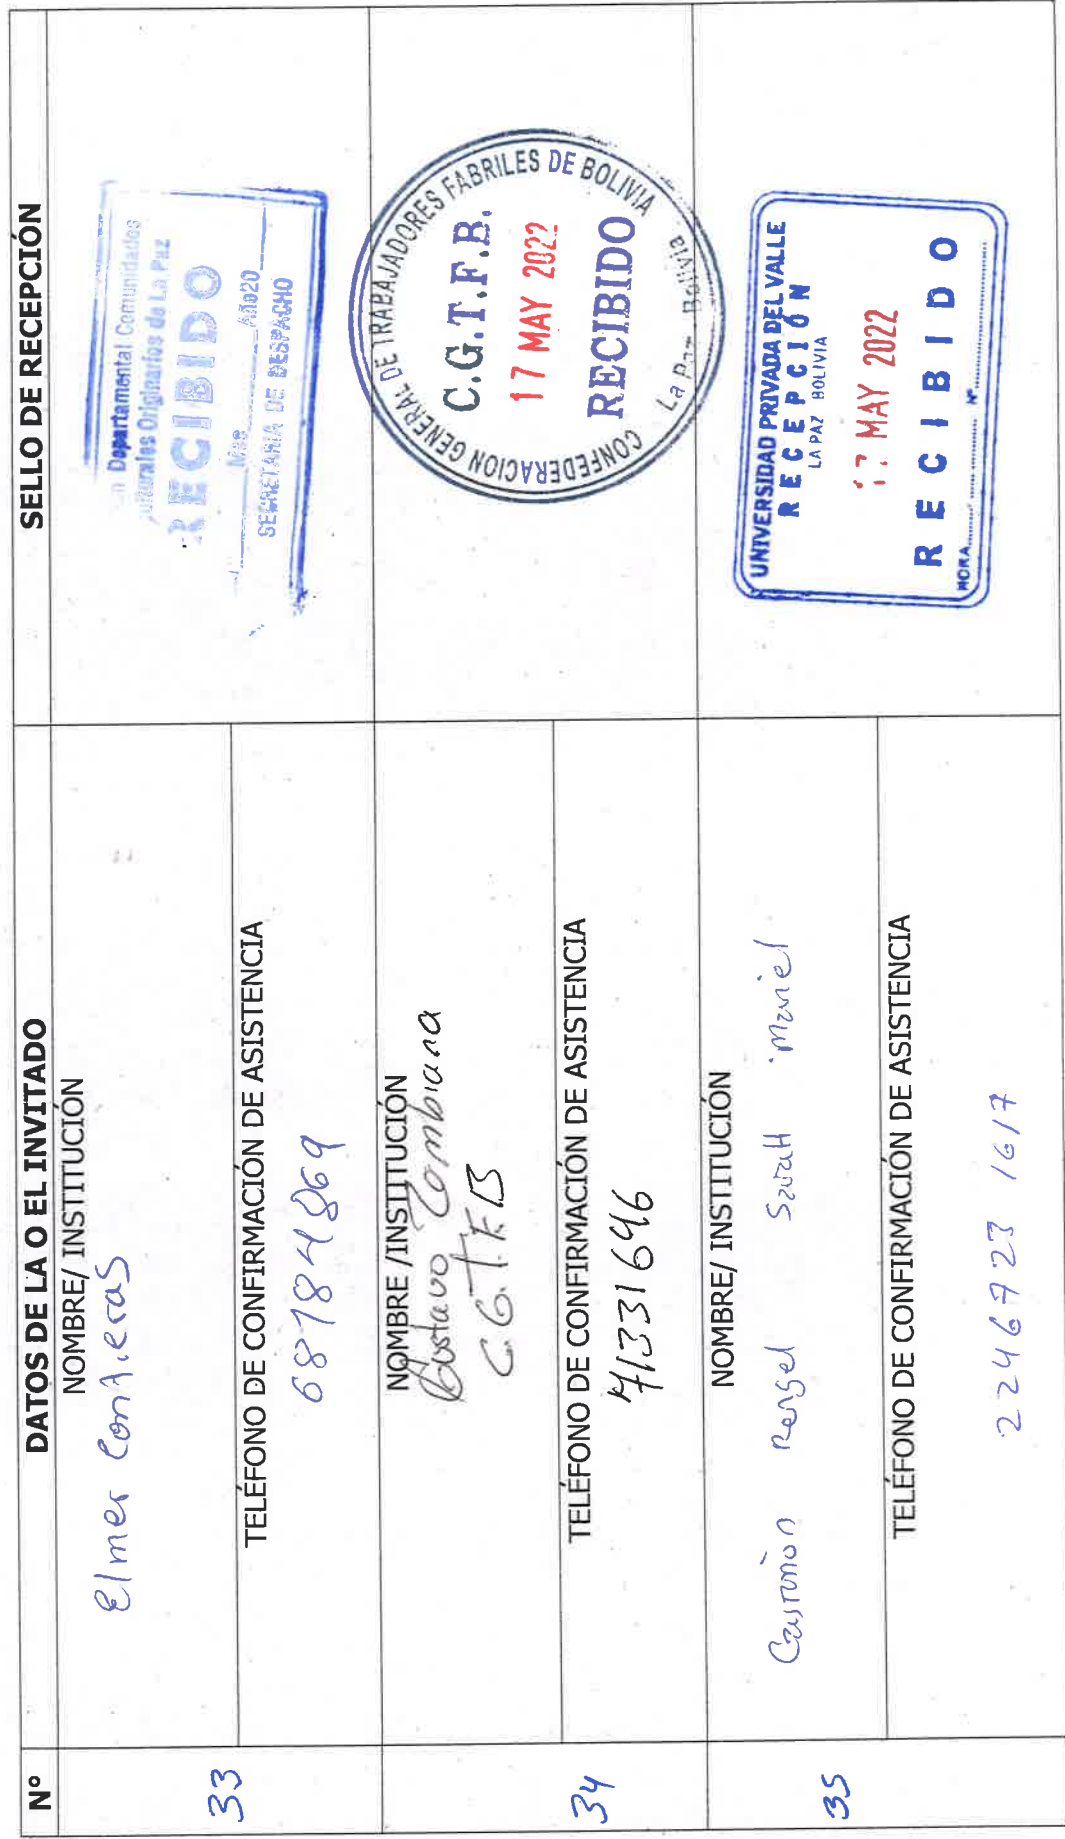 Nº
DATOS DE LA O EL INVITADO
SELLO DE RECEPCIÓN
33
NOMBRE/ INSTITUCIÓN
Elmer Contreras
TELÉFONO DE CONFIRMACIÓN DE ASISTENCIA
68784869
n Departamental Comunidades
ulturales Originarios de La Paz
RECIBIDO
Mes Año20
SECRETARIA DE DESPACHO
34
NOMBRE /INSTITUCIÓN
Gustavo Zambrana
C.G.T.F.B
TELÉFONO DE CONFIRMACIÓN DE ASISTENCIA
71331646
CONFEDERACION GENERAL DE TRABAJADORES FABRILES DE BOLIVIA
C.G.T.F.B.
17 MAY 2022
RECIBIDO
La Paz - Bolivia
35
NOMBRE/ INSTITUCIÓN
Castañon Rengel Sarah Mariel
TELÉFONO DE CONFIRMACIÓN DE ASISTENCIA
2246723 1617
UNIVERSIDAD PRIVADA DEL VALLE
RECEPCIÓN
LA PAZ BOLIVIA
17 MAY 2022
RECIBIDO
HORA Nº